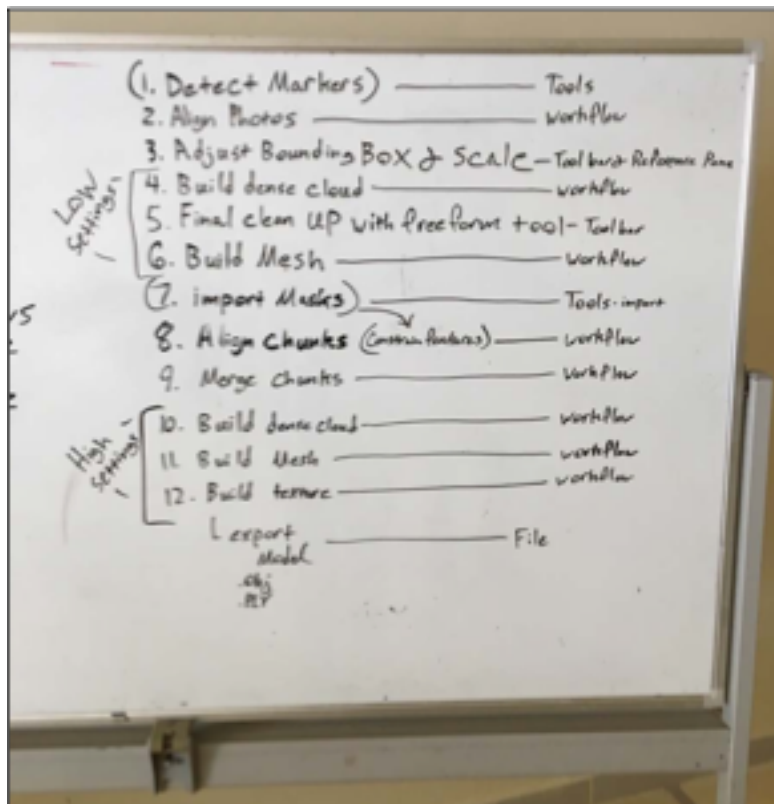 (1. Detect Markers) Tools
2. Align Photos workflow
3. Adjust Bounding Box & Scale - Toolbar & Reference Pane
Low Settings
4. Build dense cloud workflow
5. Final clean UP with freeform tool - Toolbar
6. Build Mesh workflow
(7. import Masks) Tools - import
8. Align Chunks (Constrain Features) workflow
9. Merge Chunks workflow
High Settings
10. Build dense cloud workflow
11 Build Mesh workflow
12. Build texture workflow
export File
Model
.obj
.PLY